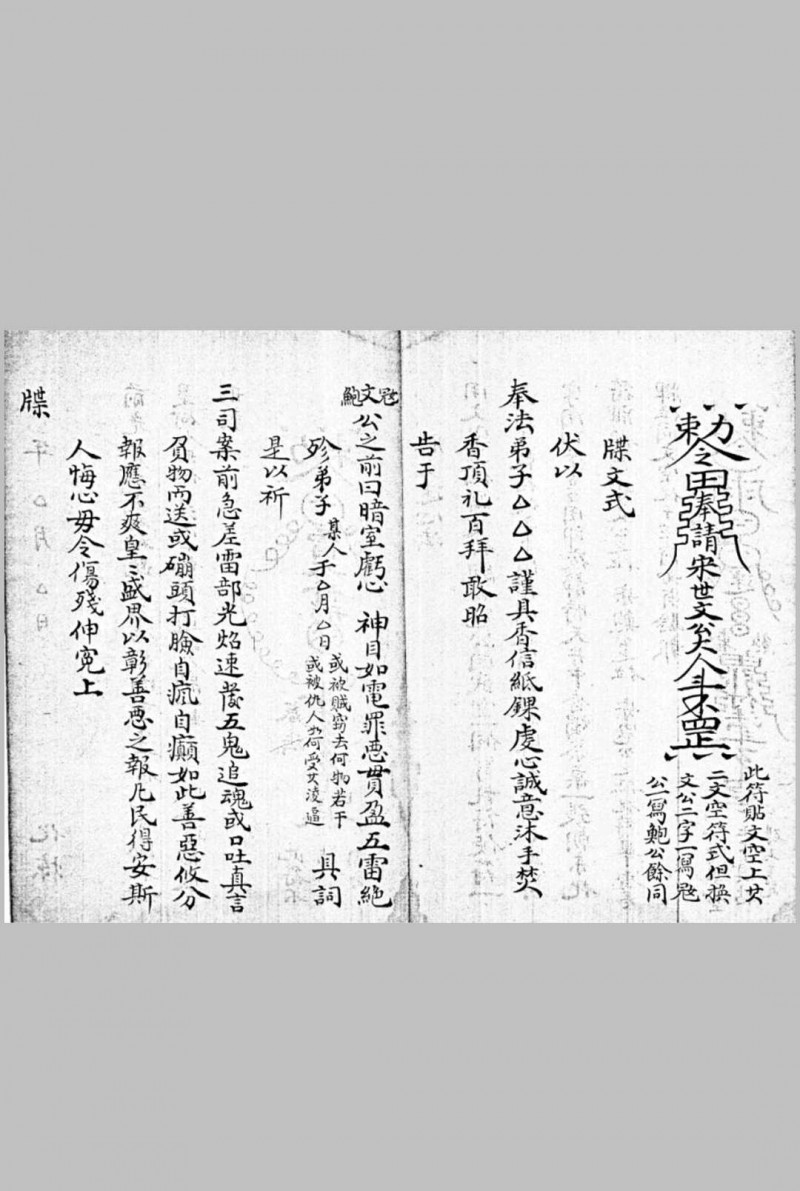 敕令 奉請宋世文公大人 罡
此符貼文空上其
二文空符式但换
文公二字一寫寇
公一寫鮑公餘同
牒文式
伏以
奉法弟子厶厶厶謹具香信紙錁虔心誠意沐手焚
香頂礼百拜敢昭
告于
寇文鮑公之前曰暗室虧心神目如電罪恶貫盈五雷絶
殄弟子某人于厶月厶日或被賊窃去何物若干
或被仇人如何受其凌逼
具詞
是以祈
三司案前急差雷部光焰速發五鬼追魂或口吐真言
負物而送或磞頭打臉自瘋自癲如此善惡攸分
報應不爽皇〻盛界以彰善恶之報凡民得安斯
人悔心毋令傷殘伸寃上
牒 年厶月厶日